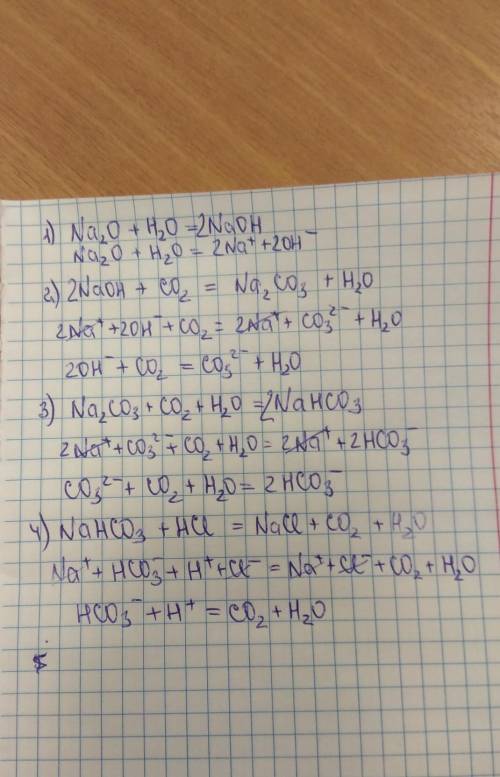 1) Na₂O + H₂O = 2NaOH
Na₂O + H₂O = 2Na⁺ + 2OH⁻
2) 2NaOH + CO₂ = Na₂CO₃ + H₂O
2Na⁺ + 2OH⁻ + CO₂ = 2Na⁺ + CO₃²⁻ + H₂O
2OH⁻ + CO₂ = CO₃²⁻ + H₂O
3) Na₂CO₃ + CO₂ + H₂O = 2NaHCO₃
2Na⁺ + CO₃²⁻ + CO₂ + H₂O = 2Na⁺ + 2HCO₃⁻
CO₃²⁻ + CO₂ + H₂O = 2HCO₃⁻
4) NaHCO₃ + HCl = NaCl + CO₂ + H₂O
Na⁺ + HCO₃⁻ + H⁺ + Cl⁻ = Na⁺ + Cl⁻ + CO₂ + H₂O
HCO₃⁻ + H⁺ = CO₂ + H₂O